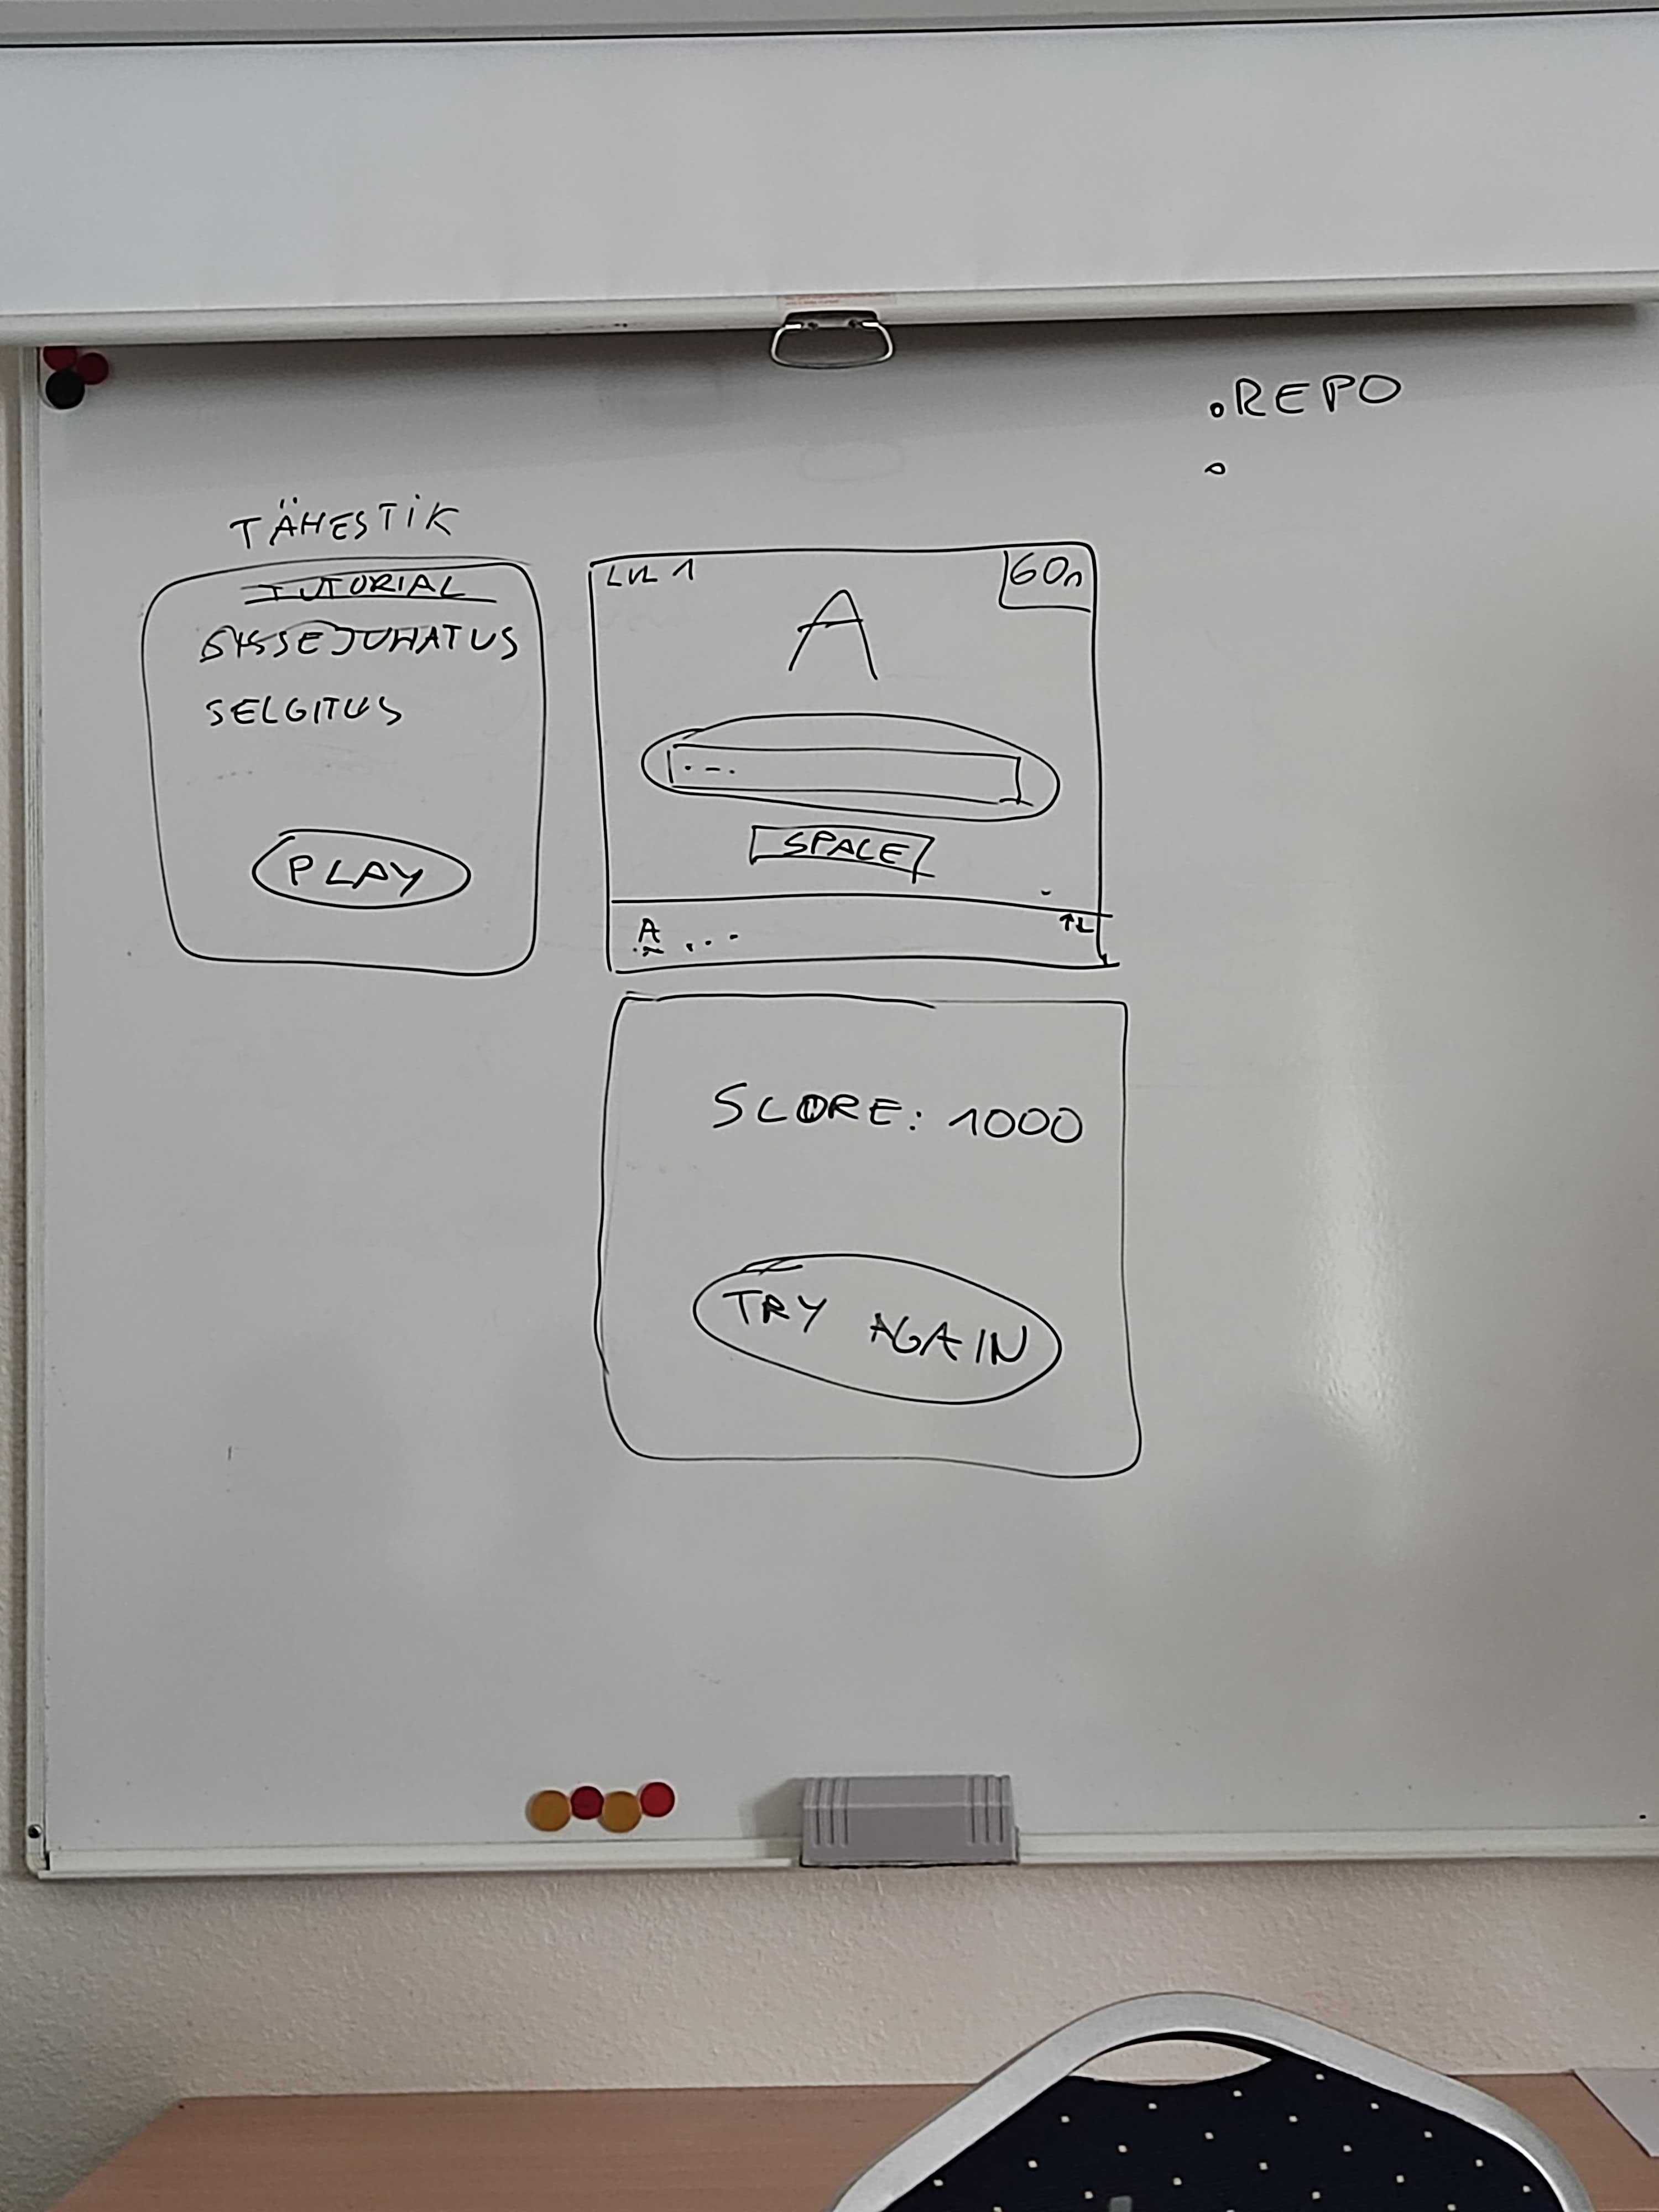 REPO
TÄHESTIK
TUTORIAL
SISSEJUHATUS
SELGITUS
PLAY
LVL 1
60s
A
. - .
SPACE
A
SCORE: 1000
TRY AGAIN